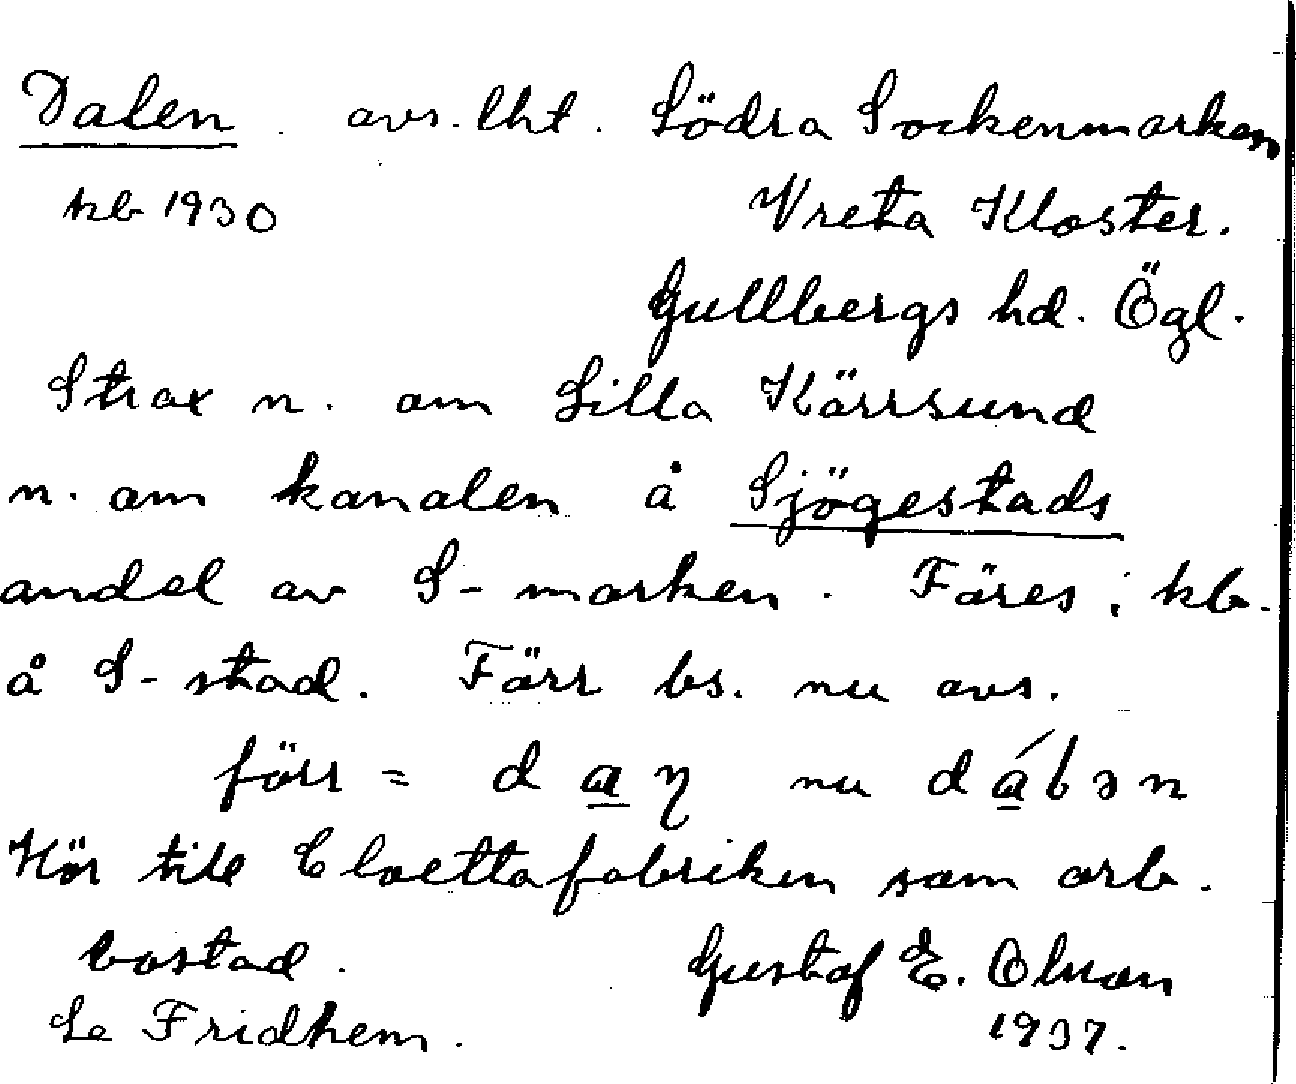 Dalen. avs. lht. Södra Sockenmarken
kb 1930 Vreta Kloster.
Gullbergs hd. Ögl.
Strax n. om Lilla Kärrsund
n. om kanalen å Sjögestads
andel av S-marken. Föres i kb.
å S-stad. Förr bs. nu avs.
förr = d a η nu d á l ə n
Hör till Cloettafabriken som arb.
bostad. Gustaf E. Olson
Se Fridhem. 1937.